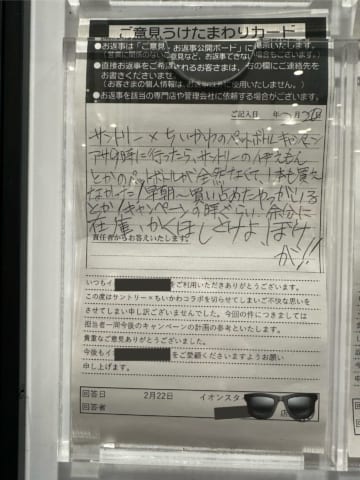 ご意見うけたまわりカード
●お返事は「ご意見・お返事公開ボード」に
●直接お返事をご希望されるお客さまは、
右の欄にご連絡先を
お書きくださいませ
●お返事を該当の専門店や管理会社に依頼する場合がございます。
ご記入日 年 月
サントリー×ちいかわのペットボトルキャンペーン
とかのペットボトルが全然なくて、1本も買え
なかった!早朝〜買い占めたやつがいる
とか!キャンペーンの時ぐらい、余分に
在庫、かくほしとけよ、ぼけ
責任者からお答えいたします。
カー!!
いつもイ をご利用いただきありがとうございます。
この度はサントリー×ちいかわコラボを切らせてしまいご不快な思いを
させてしまい申し訳ございませんでした。今回の件につきましては
担当者一同今後のキャンペーンの計画の参考といたします。
貴重なご意見ありがとうございました。
今後もイ をご愛顧くださいますようお願い
申し上げます。
回答日 2月22日 イオンスタイ
回答者 店